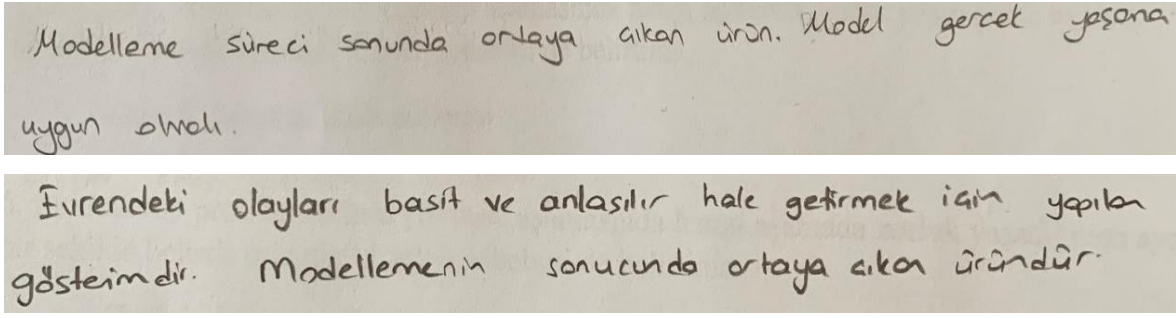 Modelleme süreci sonunda ortaya çıkan ürün. Model gerçek yaşama
uygun olmalı.
Evrendeki olayları basit ve anlaşılır hale getirmek için yapılan
gösteimdir. Modellemenin sonucunda ortaya çıkan üründür.